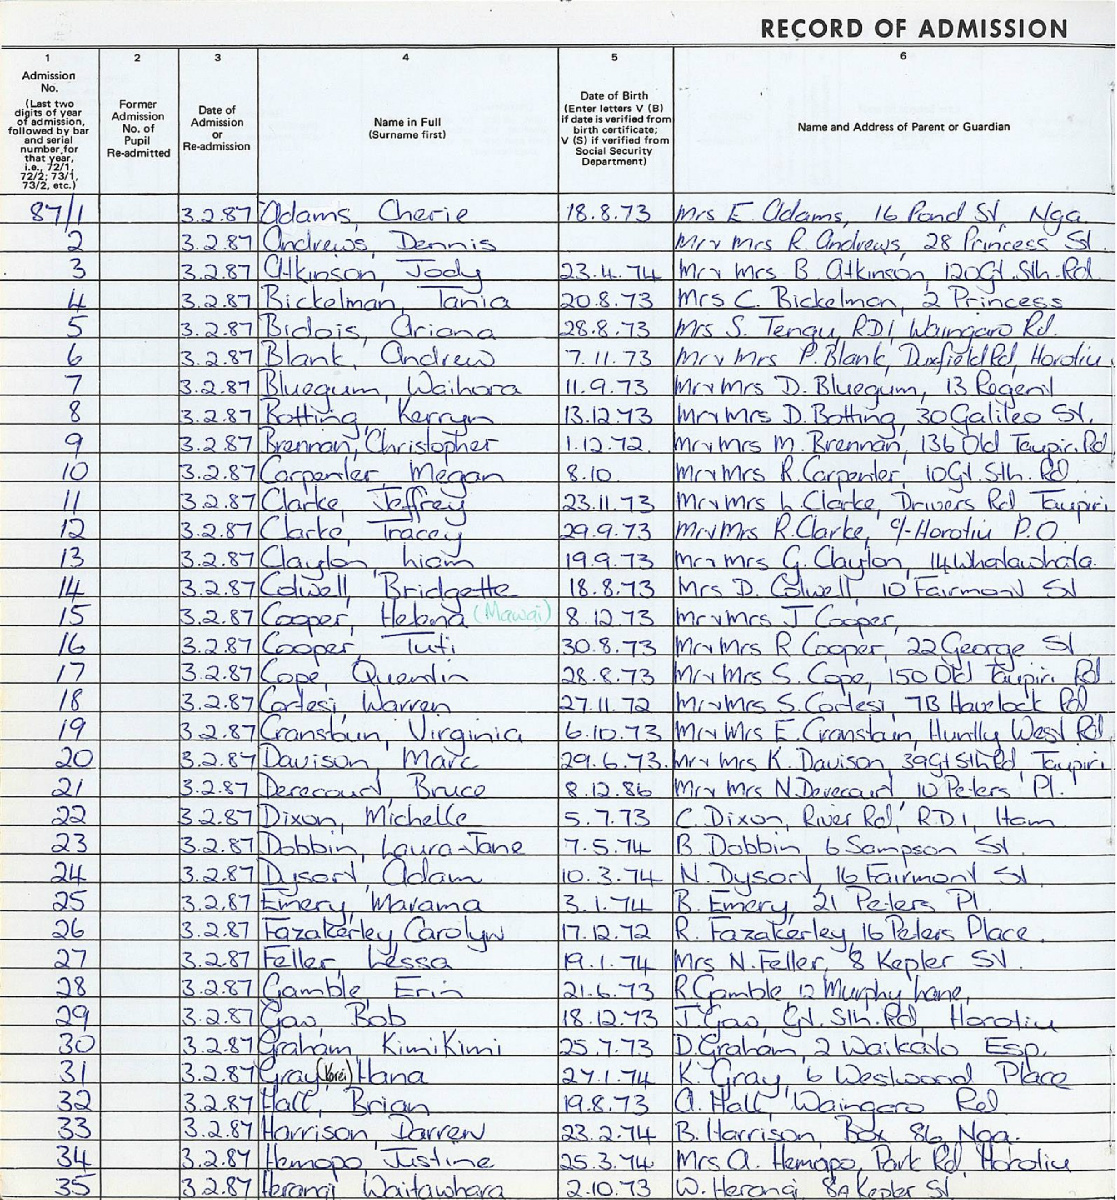 RECORD OF ADMISSION
1 2 3 4 5 6
Admission No. (Last two digits of year of admission, followed by bar and serial number for that year, i.e., 72/1, 72/2; 73/1, 73/2, etc.)
Former Admission No. of Pupil Re-admitted
Date of Admission or Re-admission
Name in Full (Surname first)
Date of Birth (Enter letters V (B) if date is verified from birth certificate; V (S) if verified from Social Security Department)
Name and Address of Parent or Guardian
87/1 3.2.87 Adams, Cherie 18.8.73 Mrs E. Adams, 16 Pond St, Nga
2 3.2.87 Andrews, Dennis Mr & Mrs R. Andrews, 28 Princess St
3 3.2.87 Atkinson, Jody 23.4.74 Mr & Mrs B. Atkinson, 120 Gt. Sth. Rd
4 3.2.87 Bickelman, Tania 20.8.73 Mrs C. Bickelman, 2 Princess
5 3.2.87 Bidois, Ariana 28.8.73 Mrs S. Tengu, RD1, Waingaro Rd.
6 3.2.87 Blank, Andrew 7.11.73 Mr & Mrs P. Blank, Duxfield Rd, Horotiu
7 3.2.87 Bluegum, Waihora 11.9.73 Mr & Mrs D. Bluegum, 13 Regent
8 3.2.87 Botting, Kerryn 13.12.73 Mr & Mrs D. Botting, 30 Galileo St.
9 3.2.87 Brennan, Christopher 1.12.72 Mr & Mrs M. Brennan, 136 Old Taupiri Rd
10 3.2.87 Carpenter, Megan 8.10 Mr & Mrs R. Carpenter, 10 Gt. Sth. Rd
11 3.2.87 Clarke, Jeffrey 23.11.73 Mr & Mrs L. Clarke, Drivers Rd Taupiri
12 3.2.87 Clarke, Tracey 29.9.73 Mr & Mrs R. Clarke, c/- Horotiu P.O.
13 3.2.87 Clayton, Liam 19.9.73 Mr & Mrs G. Clayton, 14 Whatawhata
14 3.2.87 Colwell, Bridgette 18.8.73 Mrs D. Colwell, 10 Fairmont St
15 3.2.87 Cooper, Helena (Mawai) 8.12.73 Mr & Mrs J Cooper,
16 3.2.87 Cooper, Tuti 30.8.73 Mr & Mrs R Cooper, 22 George St
17 3.2.87 Cope, Quentin 28.8.73 Mr & Mrs S. Cope, 150 Old Taupiri Rd.
18 3.2.87 Cortesi, Warren 27.11.72 Mr & Mrs S. Cortesi, 7B Havelock Rd
19 3.2.87 Cranstoun, Virginia 6.10.73 Mr & Mrs E. Cranstoun, Huntly West Rd
20 3.2.87 Davison, Marc 29.6.73. Mr & Mrs K. Davison, 39 Gt Sth Rd, Taupiri
21 3.2.87 Derecourt, Bruce 8.12.86 Mr & Mrs N. Derecourt 10 Peters Pl.
22 3.2.87 Dixon, Michelle 5.7.73 C. Dixon, River Rd, RD1, Ham
23 3.2.87 Dobbin, Laura-Jane 7.5.74 B. Dobbin 6 Sampson St.
24 3.2.87 Dysart, Adam 10.3.74 N. Dysart, 16 Fairmont St.
25 3.2.87 Emery, Marama 3.1.74 B. Emery, 21 Peters Pl.
26 3.2.87 Fazakerley Carolyn 17.12.72 R. Fazakerley, 16 Peters Place.
27 3.2.87 Feller, Lessa 19.1.74 Mrs N. Feller, 8 Kepler St.
28 3.2.87 Gamble, Erin 21.6.73 R Gamble 12 Murphy Lane,
29 3.2.87 Gav, Bob 18.12.73 J. Gav, Gt. Sth. Rd, Horotiu
30 3.2.87 Graham, KimiKimi 25.7.73 D. Graham, 2 Waikato Esp.
31 3.2.87 Gray Hana 27.1.74 K. Gray, 6 Westwood Place
32 3.2.87 Hall, Brian 19.8.73 A. Hall, Waingaro Rd
33 3.2.87 Harrison, Darren 23.2.74 B. Harrison, Box 86, Nga.
34 3.2.87 Hemopo, Justine 25.3.74. Mrs A. Hemopo, Park Rd, Horotiu
35 3.2.87 Herangi Waitawhara 2.10.73 W. Herangi 8A Kepler St